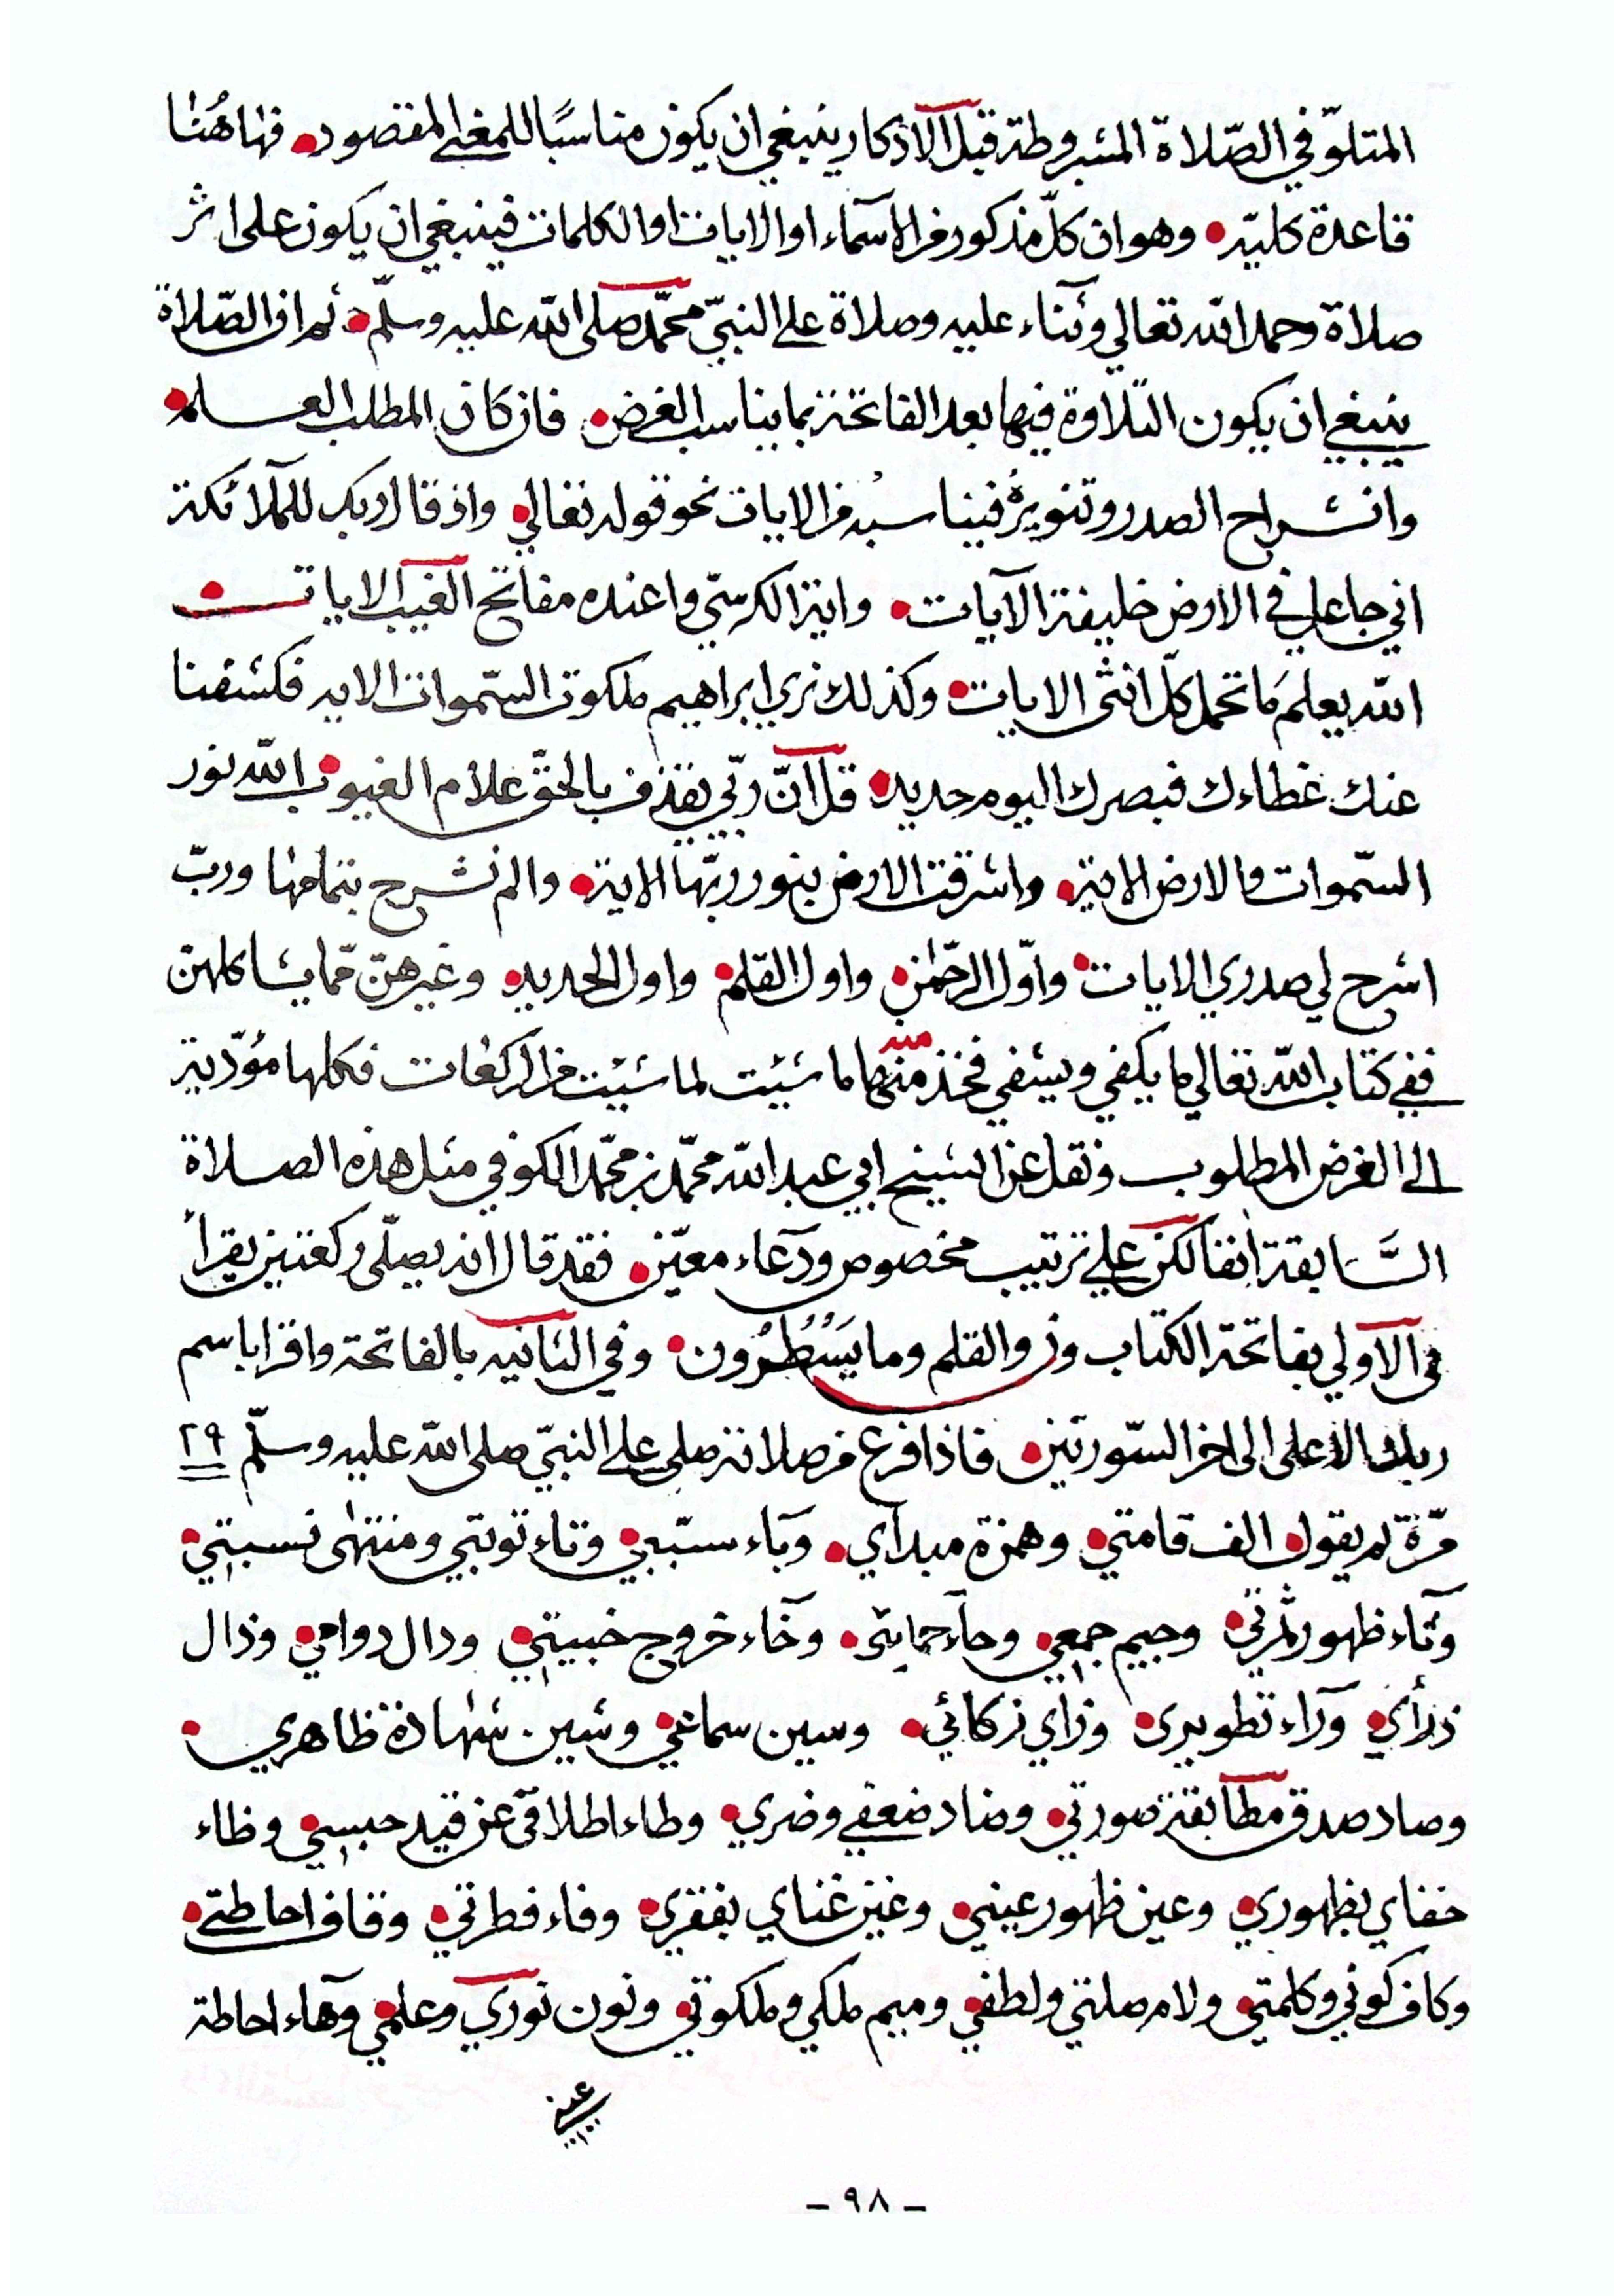 المتلوّ في الصّلاة المشروطة قبل الاذكار ينبغي ان يكون مناسبًا للمعنى المقصود فهاهُنا
قاعدة كلية وهو ان كلّ مذكور من الاسماء او الايات او الكلمات فينبغي ان يكون على اثر
صلاة وحمد الله تعالي وثناء عليه وصلاة على النبيّ محمّد صلى الله عليه وسلّم ثم ان الصّلاة
ينبغي ان يكون التلاوة فيها بعد الفاتحة بما يناسب الغرض فان كان المطلب العلم
وانشراح الصدر وتنويرهُ فيناسبُه من الايات نحو قوله تعالي واذ قال ربك للملآئكة
اني جاعل في الارض خليفة الآيات واية الكرسي واعنده مفاتح الغيب الايات
الله يعلم ما تحمل كلّ انثى الايات وكذلك نري ابراهيم ملكوت السّموات الايه فكشفنا
عنك غطاءك فبصرك اليوم حديد قل انّ ربّي يقذف بالحقّ علام الغيوب الله نور
السّموات والارض الاية واشرقت الارض بنور ربّها الاية والم نشرح بتمامها وربّ
اشرح لي صدري الايات واوّل الرحمٰن واول القلم واول الحديد وغيرهنّ ممّا يشاكلهن
ففي كتاب الله تعالي ما يكفي ويشفي فخذ منها منه ما شيئت لما شيئت من الركعات فكلها مؤدّية
الى الغرض المطلوب ونقل عن الشيخ ابي عبد الله محمّد بن محمّد الكوفي مثل هذه الصلاة
السَّابقة انفا لكن علي ترتيب مخصوص ودعاء معيّن فقد قال انه يصلّى ركعتين يقرأ
في الاولي بفاتحة الكتاب ون والقلم وما يَسْطُرُون وفي الثانيه بالفاتحة واقرا باسم
ربك الاعلى الى اخر السّورتين فاذا فرغ من صلاته صلى على النبيّ صلى الله عليه وسلّم ٢٩
مّرة ثم يقول الف قامتي وهمزة مبدآي وباء سبّبي وتاء توبتي ومنتهى نسبتي
وثاء ظهور ثمرتي وجيم جمعي وحآء حمايتى وخآء خروج خبيتي ودال دوامي وذال
ذرأي ورآء تطويرى وزاي زكائي وسين سماعي وشين شهادة ظاهري
وصاد صدق مطابقة صورتي وضاد ضعفي وضري وطاء اطلاقى عن قيد حبسي وظاء
خفاي بظهوري وعين ظهور عيني وغين غناي بفقري وفاء فطرتي وقاف احاطتي
وكاف كوني وكلمتي ولام صلتي ولطفي وميم ملكي وملكوتي ونون نوري وعلمي وهاء احاطة
- ٩٨ -